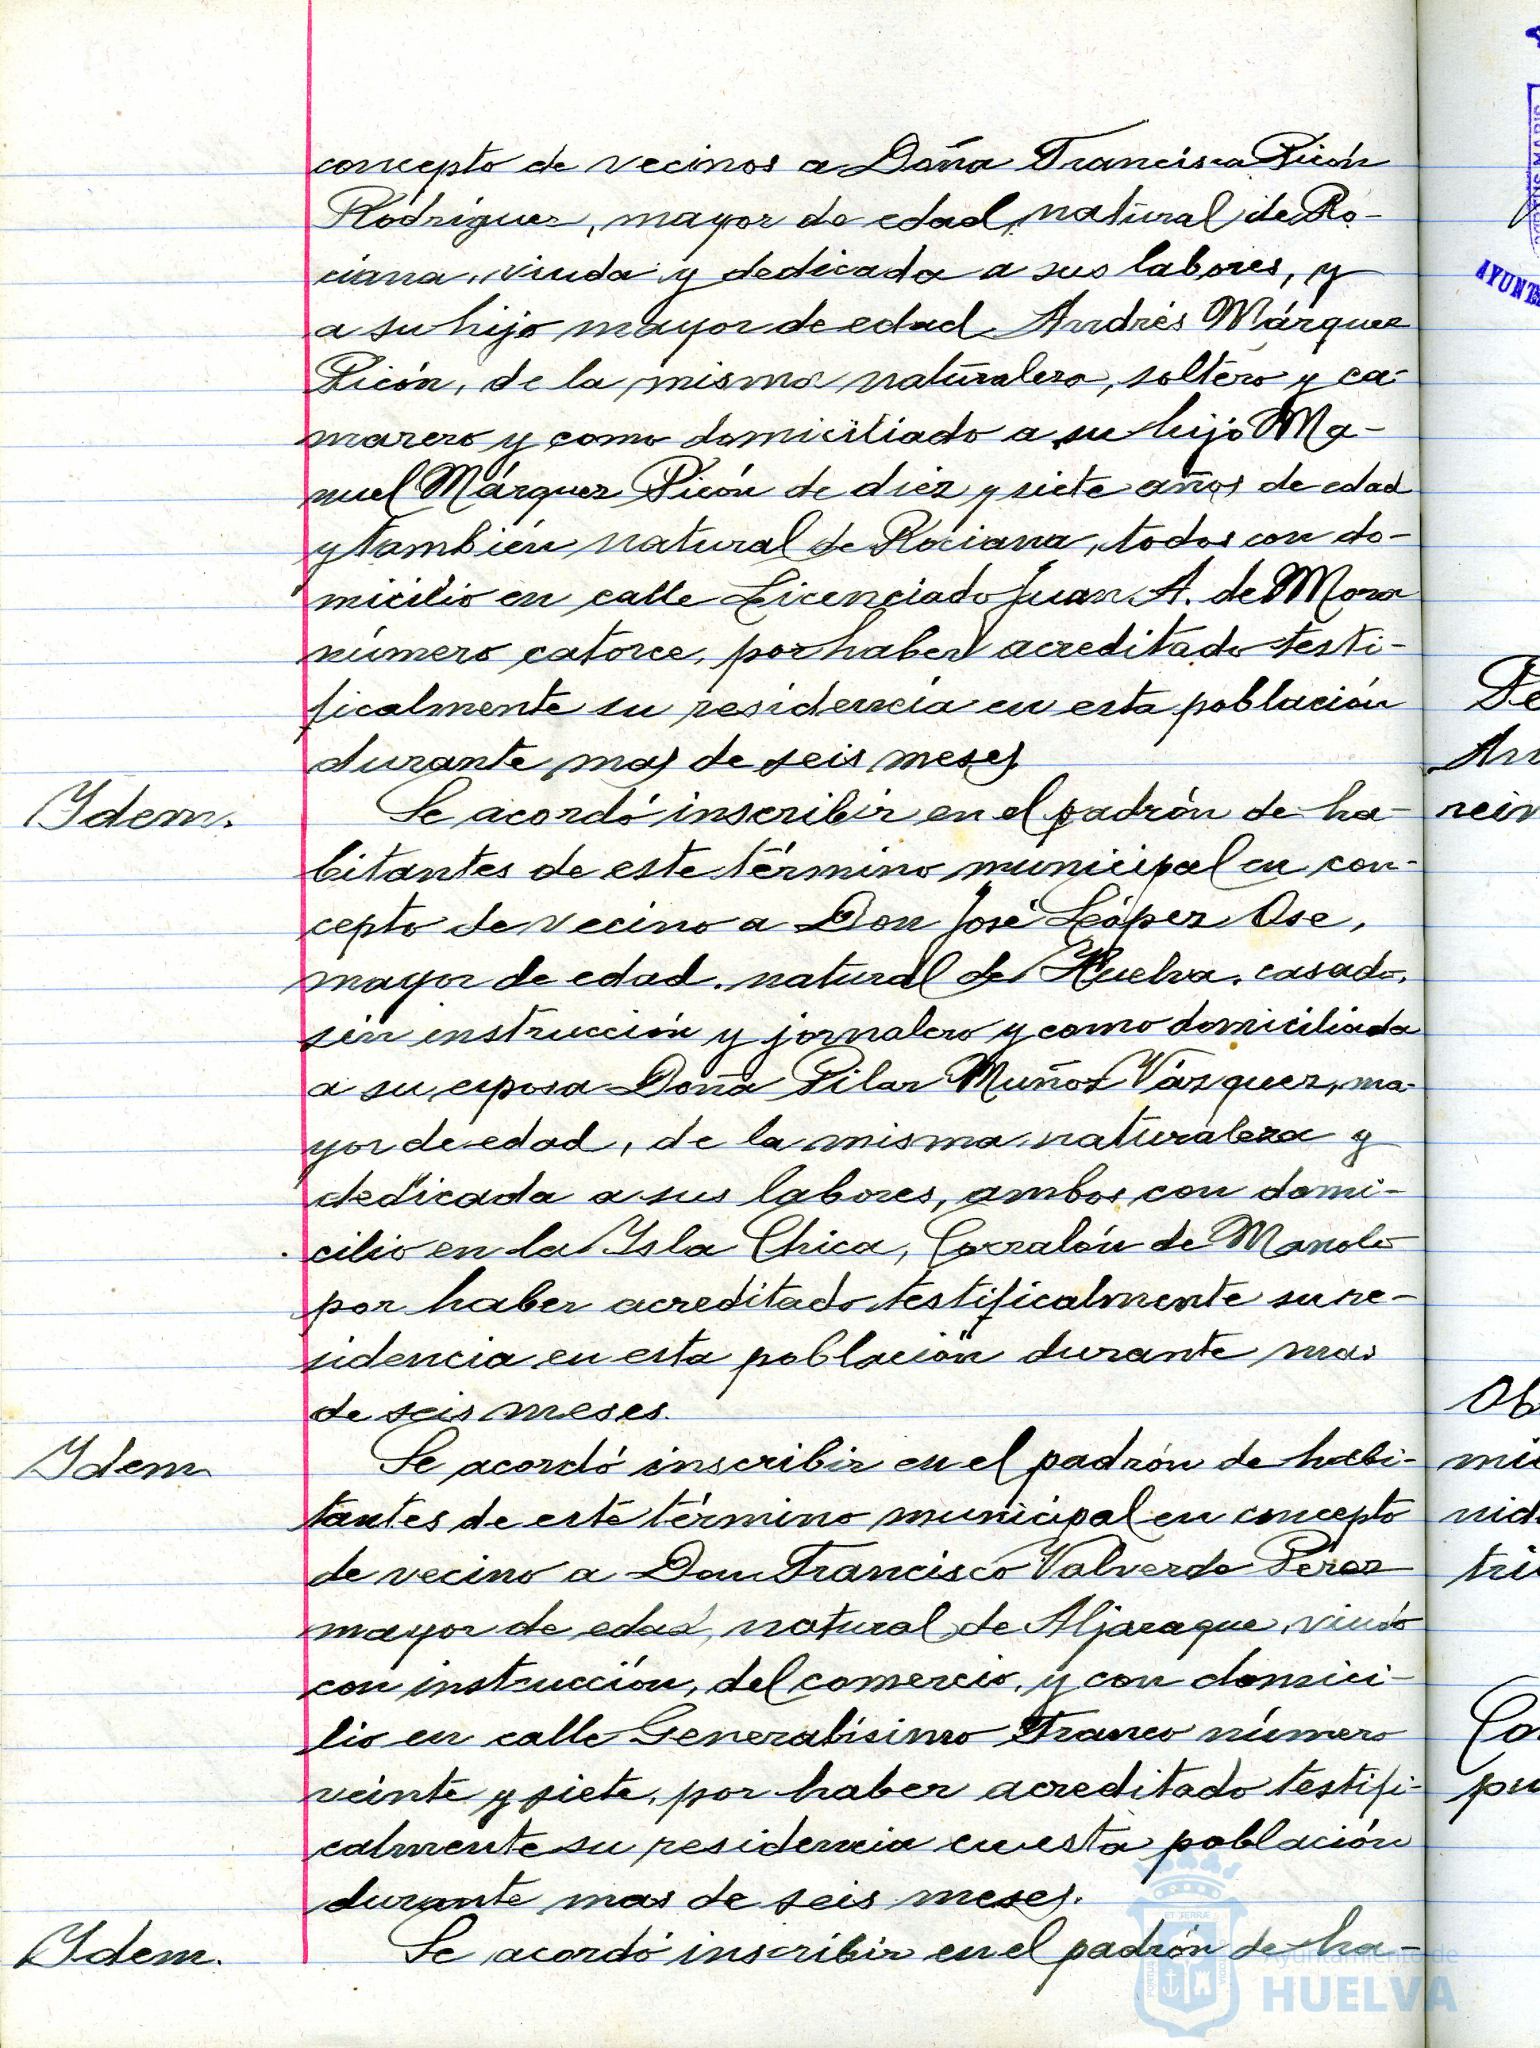 concepto de vecinos a Doña Francisca Picón
Rodríguez, mayor de edad, natural de Ro-
ciana, viuda y dedicada a sus labores, y
a su hijo mayor de edad Andrés Márquez
Picón, de la misma naturaleza, soltero y ca-
marero y como domiciliado a su hijo Ma-
nuel Márquez Picón de diez y siete años de edad
y también natural de Rociana, todos con do-
micilio en calle Licenciado Juan A. de Mora
número catorce, por haber acreditado testi-
ficalmente su residencia en esta población
durante mas de seis meses
Idem.
Se acordó inscribir en el padrón de ha-
bitantes de este término municipal en con-
cepto de vecino a Don José López Ose,
mayor de edad, natural de Huelva, casado,
sin instrucción y jornalero y como domiciliada
a su esposa Doña Pilar Muñoz Vázquez, ma-
yor de edad, de la misma naturaleza y
dedicada a sus labores, ambos con domi-
cilio en la Isla Chica, Corralón de Manolo
por haber acreditado testificalmente su re-
sidencia en esta población durante mas
de seis meses.
Idem
Se acordó inscribir en el padrón de habi-
tantes de este término municipal en concepto
de vecino a Don Francisco Valverde Pérez
mayor de edad, natural de Aljaraque, viudo
con instrucción, del comercio, y con domici-
lio en calle Generalísimo Franco número
veinte y siete, por haber acreditado testifi-
calmente su residencia en esta población
durante mas de seis meses.
Idem.
Se acordó inscribir en el padrón de ha-
Ayuntamiento de
HUELVA